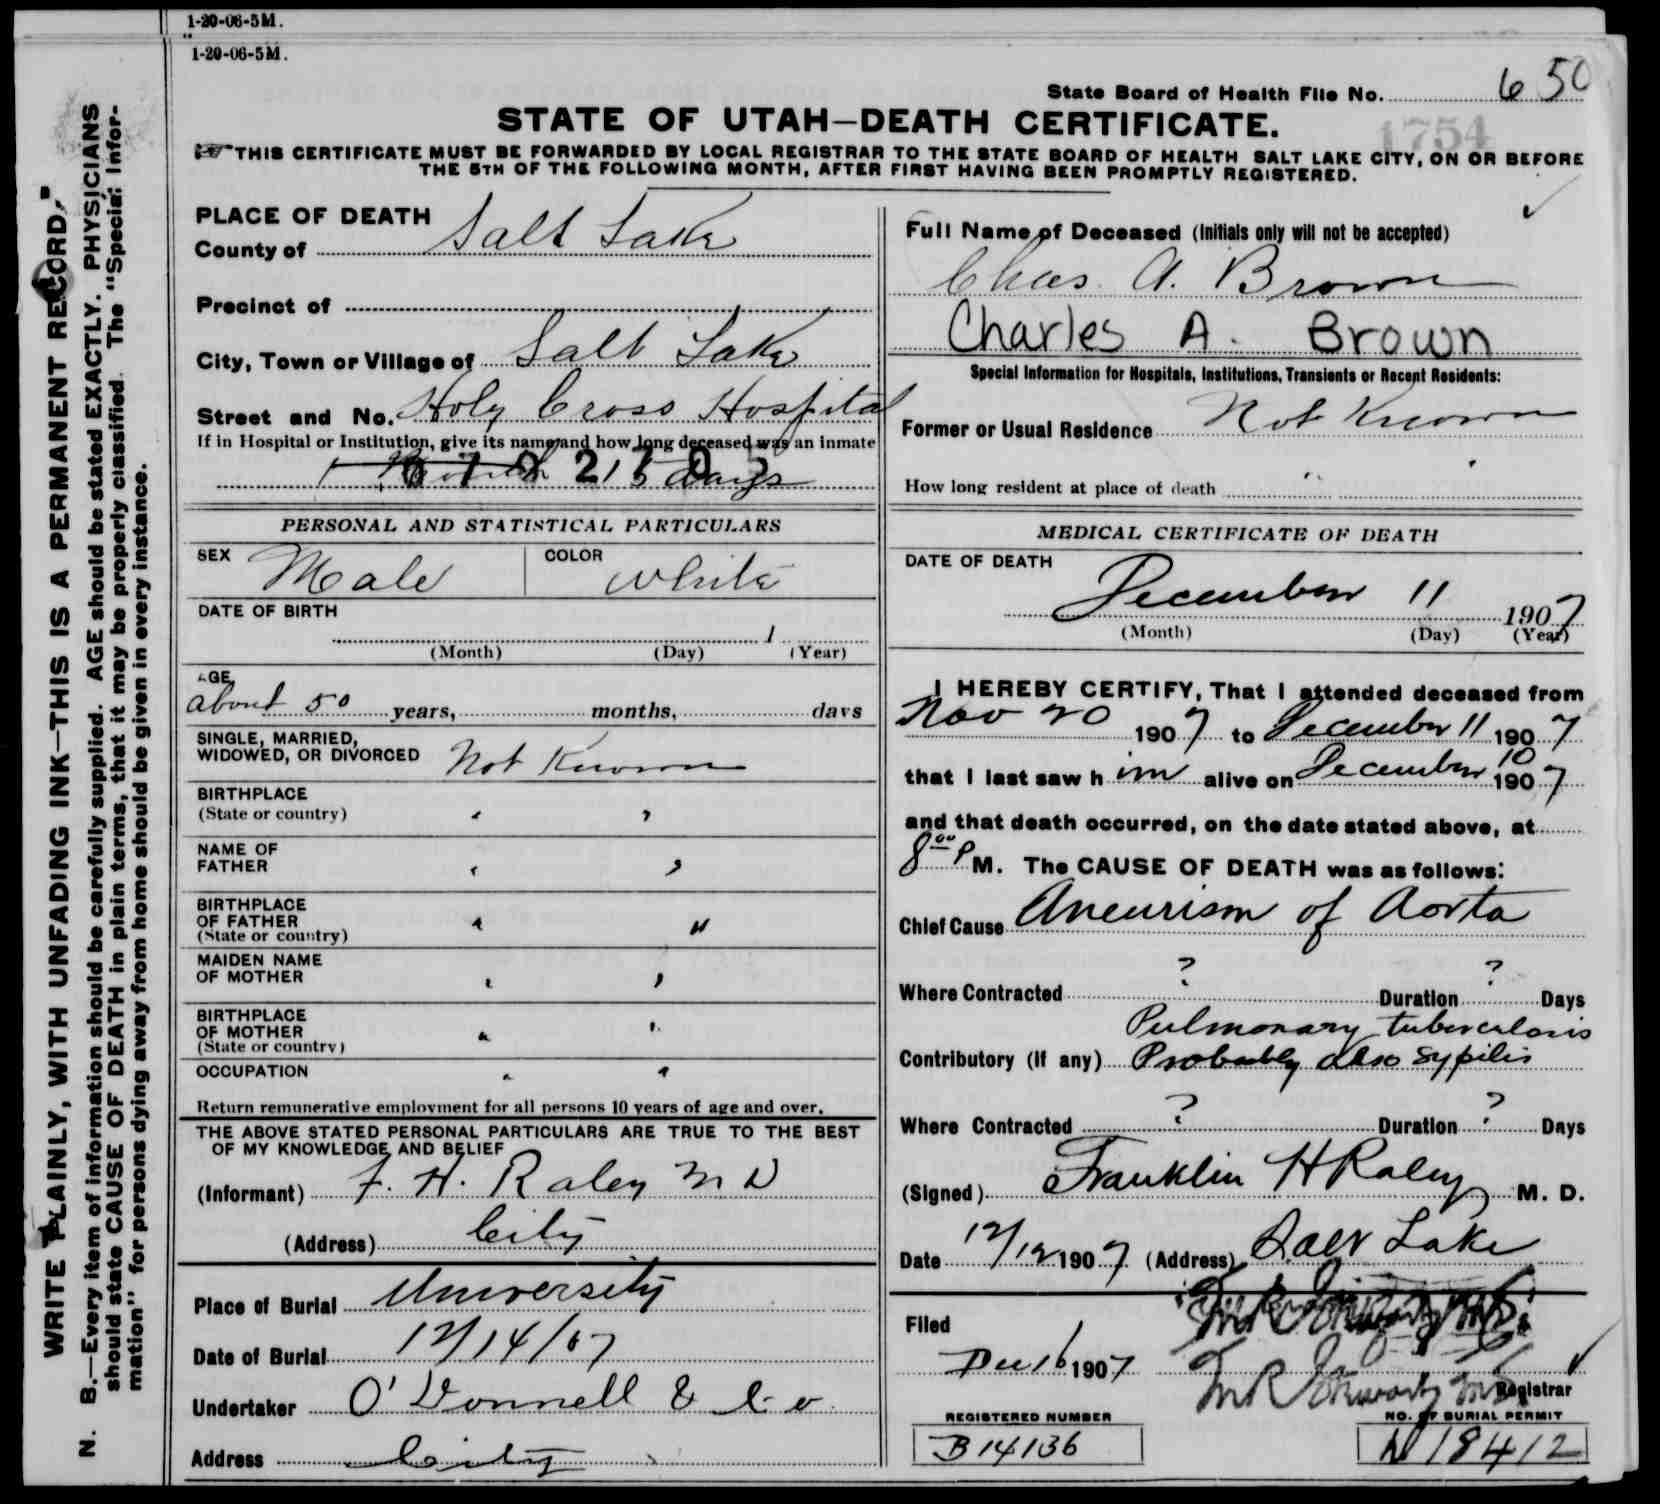 1-20-06-5M.
1-20-06-5M.
WRITE PLAINLY, WITH UNFADING INK—THIS IS A PERMANENT RECORD."
N. B.—Every item of information should be carefully supplied. AGE should be stated EXACTLY. PHYSICIANS
should state CAUSE OF DEATH in plain terms, that it may be properly classified. The "Special Infor-
mation" for persons dying away from home should be given in every instance.
State Board of Health File No. 650
STATE OF UTAH—DEATH CERTIFICATE.
1754
THIS CERTIFICATE MUST BE FORWARDED BY LOCAL REGISTRAR TO THE STATE BOARD OF HEALTH SALT LAKE CITY, ON OR BEFORE
THE 5TH OF THE FOLLOWING MONTH, AFTER FIRST HAVING BEEN PROMPTLY REGISTERED.
PLACE OF DEATH
County of Salt Lake
Precinct of
City, Town or Village of Salt Lake
Street and No. Holy Cross Hospital
If in Hospital or Institution, give its name and how long deceased was an inmate
days
PERSONAL AND STATISTICAL PARTICULARS
SEX Male COLOR White
DATE OF BIRTH
1
(Month) (Day) (Year)
AGE
about 50 years, months, days
SINGLE, MARRIED,
WIDOWED, OR DIVORCED Not Known
BIRTHPLACE
(State or country) " "
NAME OF
FATHER " "
BIRTHPLACE
OF FATHER
(State or country) " "
MAIDEN NAME
OF MOTHER " "
BIRTHPLACE
OF MOTHER
(State or country) " "
OCCUPATION " "
Return remunerative employment for all persons 10 years of age and over.
THE ABOVE STATED PERSONAL PARTICULARS ARE TRUE TO THE BEST
OF MY KNOWLEDGE AND BELIEF
(Informant) F. H. Raley M D
(Address) City
Place of Burial University
Date of Burial 12/14/07
Undertaker O'Donnell & Co
Address City
Full Name of Deceased (Initials only will not be accepted)
Chas. A. Brown
Charles A. Brown
Special Information for Hospitals, Institutions, Transients or Recent Residents:
Former or Usual Residence Not Known
How long resident at place of death " "
MEDICAL CERTIFICATE OF DEATH
DATE OF DEATH
December 11 1907
(Month) (Day) (Year)
I HEREBY CERTIFY, That I attended deceased from
Nov 20 1907 to December 11 1907
that I last saw h im alive on December 10 1907
and that death occurred, on the date stated above, at
8 00 P M. The CAUSE OF DEATH was as follows:
Chief Cause Aneurism of Aorta
Where Contracted ? Duration ? Days
Pulmonary tuberculosis
Contributory (If any) Probably also Sypilis
Where Contracted ? Duration ? Days
(Signed) Franklin H Raley M. D.
Date 12/12 1907 (Address) Salt Lake
Filed
Dec 16 1907
Registrar
REGISTERED NUMBER
B14136
NO. OF BURIAL PERMIT
18412